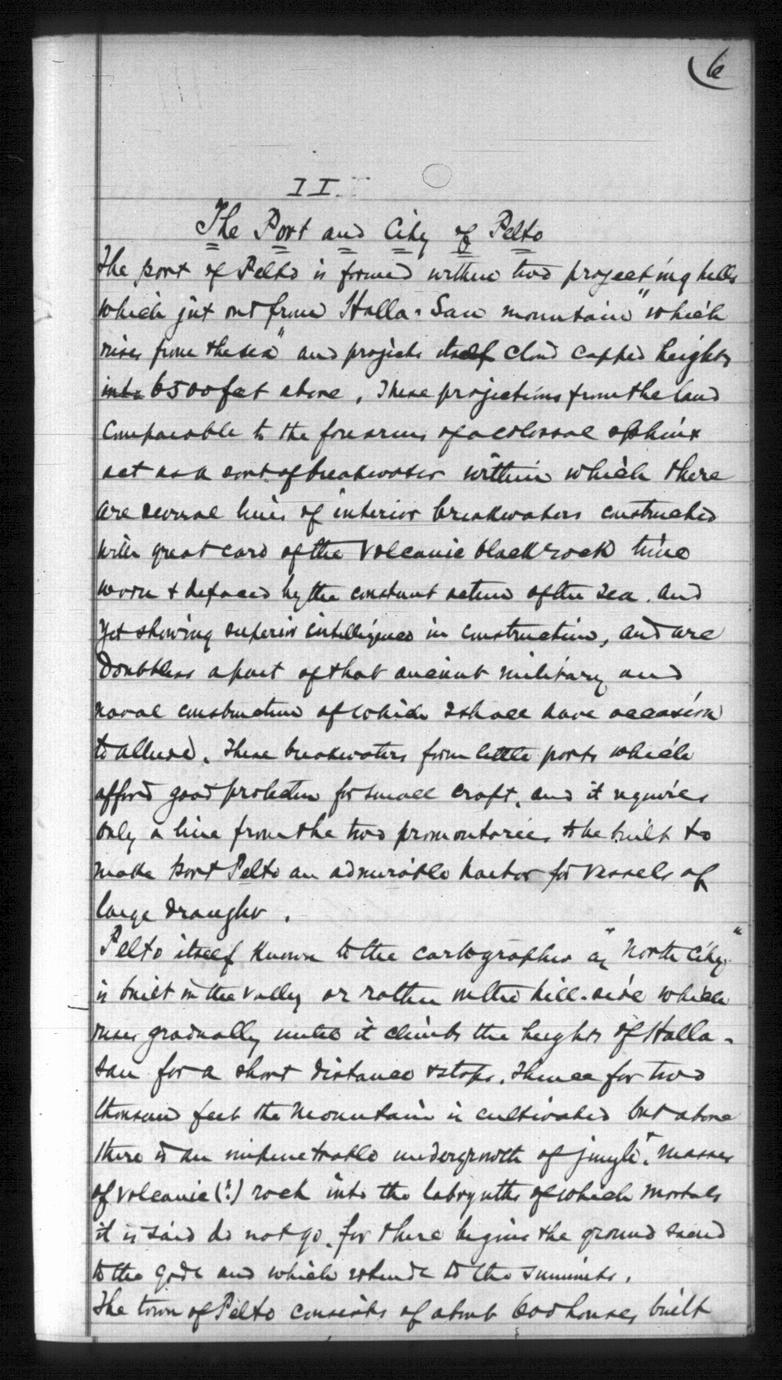 6
II
The Port and City of Pelto
The port of Pelto is formed within two projecting hills
which jut out from Halla-San mountain "which
rises from the sea" and projects itself cloud capped heights
into 6500 feet above. These projections from the land
comparable to the forearms of a colossal sphinx
act as a sort of breakwater within which there
are several lines of interior breakwaters constructed
with great care of the volcanic black rock time
worn & defaced by the constant action of the sea. and
yet showing superior intelligence in construction, and are
doubtless a part of that ancient military and
naval construction of which I shall have occasion
to allude. These breakwaters form little ports which
afford good protection for small craft, and it requires
only a line from the two promontories to be built to
make port Pelto an admirable harbor for vessels of
large draught.
Pelto itself known to the cartographer as "North City"
is built in the valley or rather on the hill-side which
rises gradually until it climbs the heights of Halla-
san for a short distance & stops. Thence for two
thousand feet the mountain is cultivated but above
there is an impenetrable undergrowth of jungle, masses
of volcanic (?) rock into the labrynths of which mortals
it is said do not go, for there begins the ground sacred
to the gods and which extends to the summits.
The town of Pelto consists of about 600 houses built